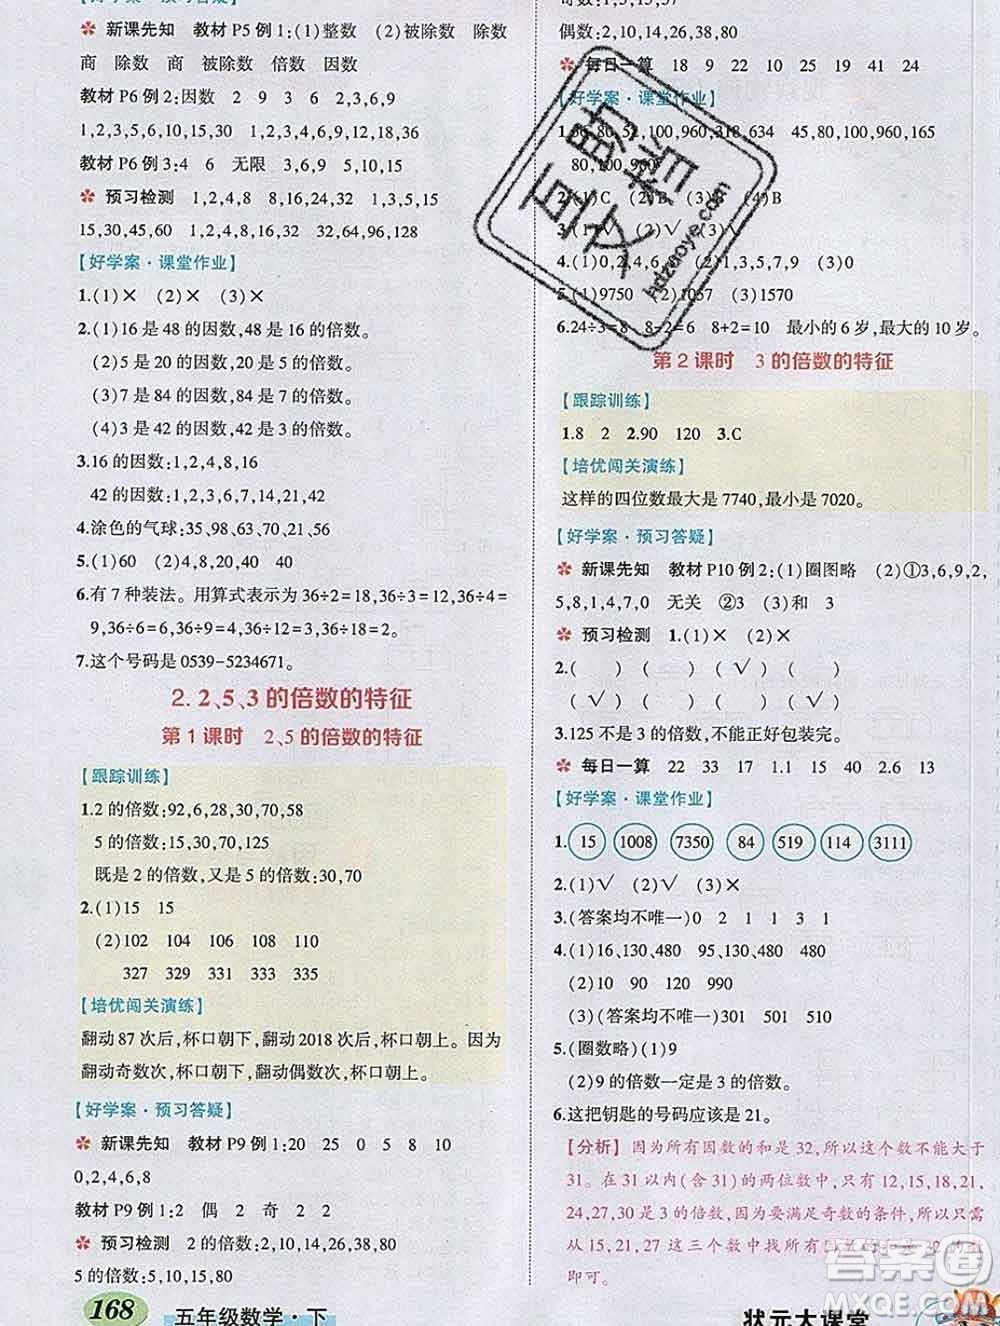 【好学案·预习答疑】
新课先知 教材 P5 例 1:(1)整数 (2)被除数 除数
商 除数 商 被除数 倍数 因数
教材 P6 例 2:因数 2 9 3 2,3,6,9
1,2,3,5,6,10,15,30 1,2,3,4,6,9,12,18,36
教材 P6 例 3:4 6 无限 3,6,9 5,10,15
预习检测 1,2,4,8 8,16,24,32 1,3,5,15
15,30,45,60 1,2,4,8,16,32 32,64,96,128
【好学案·课堂作业】
1.(1)× (2)× (3)×
2.(1)16 是 48 的因数,48 是 16 的倍数。
(2)5 是 20 的因数,20 是 5 的倍数。
(3)7 是 84 的因数,84 是 7 的倍数。
(4)3 是 42 的因数,42 是 3 的倍数。
3.16 的因数:1,2,4,8,16
42 的因数:1,2,3,6,7,14,21,42
4.涂色的气球:35,98,63,70,21,56
5.(1)60 (2)4,8,20,40 40
6.有 7 种装法。用算式表示为 36÷2=18,36÷3=12,36÷4=
9,36÷6=6,36÷9=4,36÷12=3,36÷18=2。
7.这个号码是 0539-5234671。
2. 2、5、3 的倍数的特征
第 1 课时 2、5 的倍数的特征
【跟踪训练】
1.2 的倍数:92,6,28,30,70,58
5 的倍数:15,30,70,125
既是 2 的倍数,又是 5 的倍数:30,70
2.(1)15 15
(2)102 104 106 108 110
327 329 331 333 335
【培优闯关演练】
翻动 87 次后,杯口朝下,翻动 2018 次后,杯口朝上。因为
翻动奇数次,杯口朝下,翻动偶数次,杯口朝上。
【好学案·预习答疑】
新课先知 教材 P9 例 1:20 25 0 5 8 10
0,2,4,6,8
教材 P9 例 1:2 偶 2 奇 2 2
预习检测 2 的倍数:2,10,14,26,38,80
5 的倍数:5,10,15,80
168 五年级数学·下
奇数:1,3,5,15,37
偶数:2,10,14,26,38,80
每日一算 18 9 22 20 15 41 24
【好学案·课堂作业】
80,100,960
(2)C (4)B
5.(1)9750 (2)1057 (3)1570
6.24÷3=8 8-2=6 8+2=10 最小的 6 岁,最大的 10 岁。
第 2 课时 3 的倍数的特征
【跟踪训练】
1.8 2 2.90 120 3.C
【培优闯关演练】
这样的四位数最大是 7740,最小是 7020。
【好学案·预习答疑】
新课先知 教材 P10 例 2:(1)圈图略 (2)①3,6,9,2,
5,8,1,4,7,0 无关 ②3 (3)和 3
预习检测 1.(1)× (2)×
2.( ) ( ) (√) ( )
(√) (√) ( ) (√)
3.125 不是 3 的倍数,不能正好包装完。
每日一算 22 33 17 1.1 40 2.6 13
【好学案·课堂作业】
1. 15 1008 7350 84 519 114 3111
2.(1)√ (2)√ (3)×
3.(答案均不唯一)0 2 1 1 3 1
4.(1)16,130,480 95,130,480 480
(2)10 90 120 990
(3)(答案均不唯一)301 501
5.(圈数略)(1)9
(2)9 的倍数一定是 3 的倍数。
6.这把钥匙的号码应该是 21。
【分析】因为所有因数的和是 32,所以这个数不能大于
31。在 31 以内(含 31)的两位数中,只有 12,15,18,21,
24,27,30 是 3 的倍数,因为要满足奇数的条件,所以只需
从 15,21,27 这三个数中找所有因数的和是 32 的
即可。
状元大课堂
答案圈
MXQE.COM
hdzuoye.com